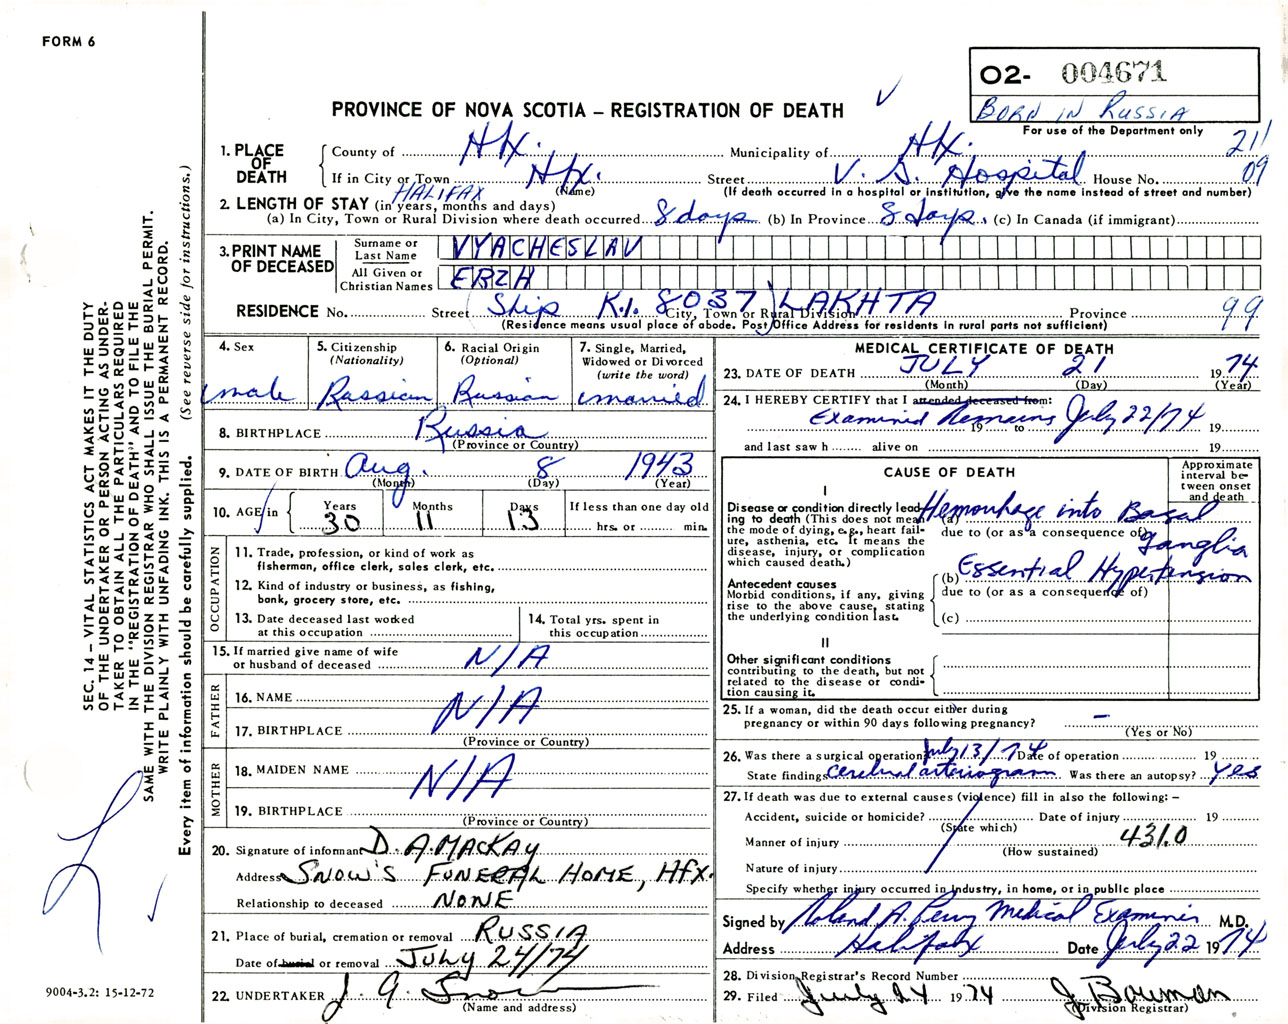 FORM 6
O2- 004671
BORN IN RUSSIA
For use of the Department only
PROVINCE OF NOVA SCOTIA – REGISTRATION OF DEATH
211
09
1. PLACE OF DEATH
County of Hfx. Municipality of Hfx.
If in City or Town Hfx. Street V. G. Hospital House No.
HALIFAX (Name) (If death occurred in a hospital or institution, give the name instead of street and number)
2. LENGTH OF STAY (in years, months and days)
(a) In City, Town or Rural Division where death occurred 8 days (b) In Province 8 days. (c) In Canada (if immigrant)
3. PRINT NAME OF DECEASED
Surname or Last Name VYACHESLAV
All Given or Christian Names ERZH
RESIDENCE No. Street (Ship K.I. 8037) LAKHTA City, Town or Rural Division Province 99
(Residence means usual place of abode. Post Office Address for residents in rural parts not sufficient)
4. Sex
male
5. Citizenship
(Nationality)
Russian
6. Racial Origin
(Optional)
Russian
7. Single, Married,
Widowed or Divorced
(write the word)
married
8. BIRTHPLACE Russia
(Province or Country)
9. DATE OF BIRTH Aug. 8 1943
(Month) (Day) (Year)
10. AGE in
Years Months Days If less than one day old
30 11 13 hrs. or min.
OCCUPATION
11. Trade, profession, or kind of work as
fisherman, office clerk, sales clerk, etc.
12. Kind of industry or business, as fishing,
bank, grocery store, etc.
13. Date deceased last worked
at this occupation
14. Total yrs. spent in
this occupation
15. If married give name of wife
or husband of deceased N/A
FATHER
16. NAME
N/A
17. BIRTHPLACE
(Province or Country)
MOTHER
18. MAIDEN NAME
N/A
19. BIRTHPLACE
(Province or Country)
20. Signature of informant D. A. MACKAY
Address SNOW'S FUNERAL HOME, HFX.
Relationship to deceased NONE
21. Place of burial, cremation or removal RUSSIA
Date of burial or removal JULY 24/74
22. UNDERTAKER J. A. Snow
(Name and address)
MEDICAL CERTIFICATE OF DEATH
23. DATE OF DEATH JULY 21 1974
(Month) (Day) (Year)
24. I HEREBY CERTIFY that I attended deceased from:
Examined Remains July 22/74
19 to 19
and last saw h alive on 19
CAUSE OF DEATH
Approximate
interval be-
tween onset
and death
I
Disease or condition directly lead-
ing to death (This does not mean
the mode of dying, e.g., heart fail-
ure, asthenia, etc. It means the
disease, injury, or complication
which caused death.)
(a) Hemorrhage into Basal
Ganglia
due to (or as a consequence of)
Antecedent causes
Morbid conditions, if any, giving
rise to the above cause, stating
the underlying condition last.
(b) Essential Hypertension
due to (or as a consequence of)
(c)
II
Other significant conditions
contributing to the death, but not
related to the disease or condi-
tion causing it.
25. If a woman, did the death occur either during
pregnancy or within 90 days following pregnancy? –
(Yes or No)
26. Was there a surgical operation July 13/74 Date of operation 19
State findings Cerebral arteriogram Was there an autopsy? Yes
27. If death was due to external causes (violence) fill in also the following: –
Accident, suicide or homicide? Date of injury 19
(State which)
Manner of injury 431.0
(How sustained)
Nature of injury
Specify whether injury occurred in industry, in home, or in public place
Signed by Roland A. Perry Medical Examiner M.D.
Address Halifax Date July 22 1974
28. Division Registrar's Record Number
29. Filed July 24 1974 J Bowman
(Division Registrar)
SEC. 14 – VITAL STATISTICS ACT MAKES IT THE DUTY
OF THE UNDERTAKER OR PERSON ACTING AS UNDER-
TAKER TO OBTAIN ALL THE PARTICULARS REQUIRED
IN THE "REGISTRATION OF DEATH" AND TO FILE THE
SAME WITH THE DIVISION REGISTRAR WHO SHALL ISSUE THE BURIAL PERMIT.
WRITE PLAINLY WITH UNFADING INK. THIS IS A PERMANENT RECORD.
Every item of information should be carefully supplied. (See reverse side for instructions.)
9004-3.2: 15-12-72